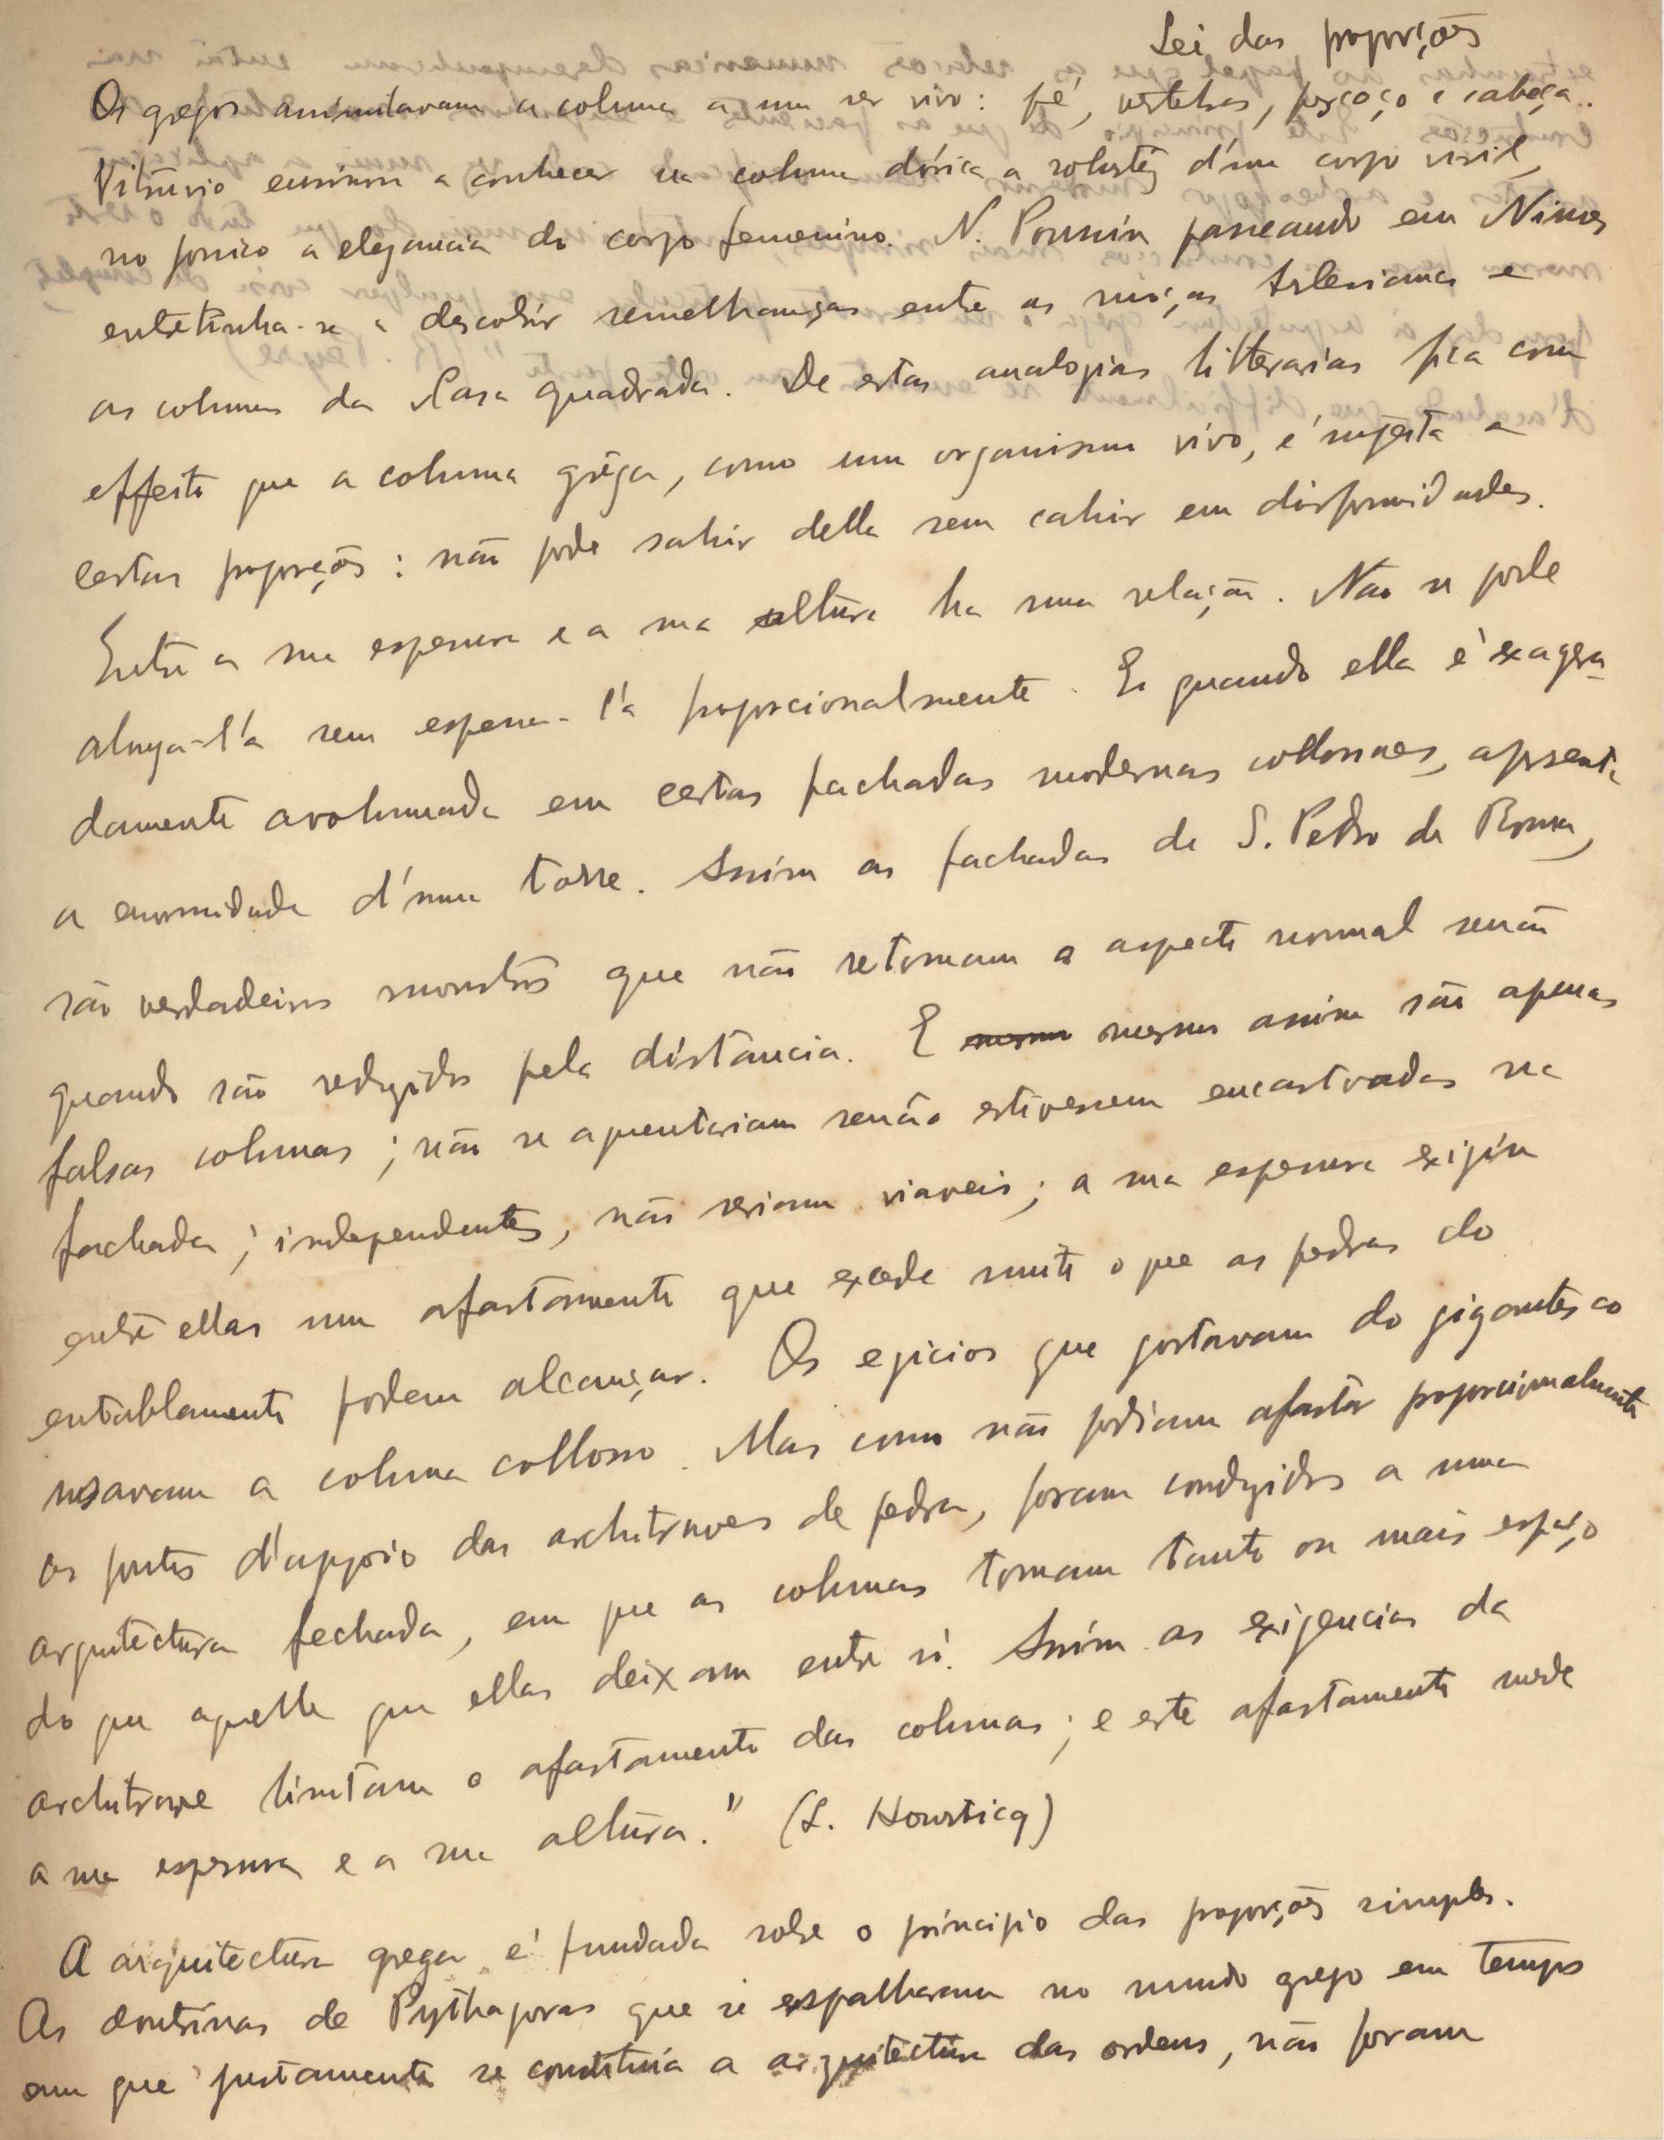 Lei das proporções
Os gregos assimilavam a coluna a um ser vivo: pé, vertebras, pescoço e cabeça..
Vitrúvio ensinou a conhecer na coluna dórica a robustês d'um corpo viril,
no jonico a elegancia do corpo femenino. N. Poussin passeando em Nimes
entretinha-se a descobrir semelhanças entre as moças Arlesianas e
as colunas da Casa quadrada. De estas analogias litterarias fica com
effeito que a columna grêga, como um organismo vivo, é sujeita a
certas proporções: não pode sahir della sem cahir em disformidades.
Entre a sua espessura e a sua altura ha uma relação. Não se pode
alonga-l'a sem espessa-l'a proporcionalmente. E quando ella é exagera-
damente avolumada em certas fachadas modernas collossaes, apresenta
a enormidade d'uma torre. Assim as fachadas de S. Pedro de Roma,
são verdadeiros monstros que não retomam o aspecto normal senão
quando são reduzidos pela distancia. E mesmo mesmo assim são apenas
falsas colunas; não se aguentariam senão estivessem encastradas na
fachada; independentes, não seriam viaveis; a sua espessura exigia
entre ellas um afastamento que excede muito o que as pedras do
entablamento podem alcançar. Os egicios que gostavam do gigantesco
usavam a coluna collosso. Mas como não podiam afastar proporcionalmente
os pontos d'appoio das architraves de pedra, foram conduzidos a uma
arquitectura fechada, em que as colunas tomam tanto ou mais espaço
do que aquelle que ellas deixam entre si. Assim as exigencias da
architrave limitam o afastamento das colunas; e este afastamento mede
a sua espessura e a sua altura." (L. Hourticq)
A arquitectura grega é fundada sobre o principio das proporções simples.
As doutrinas de Pythagoras que se espalharam no mundo grego em tempos
em que justamente se constituia a arquitectura das ordens, não foram